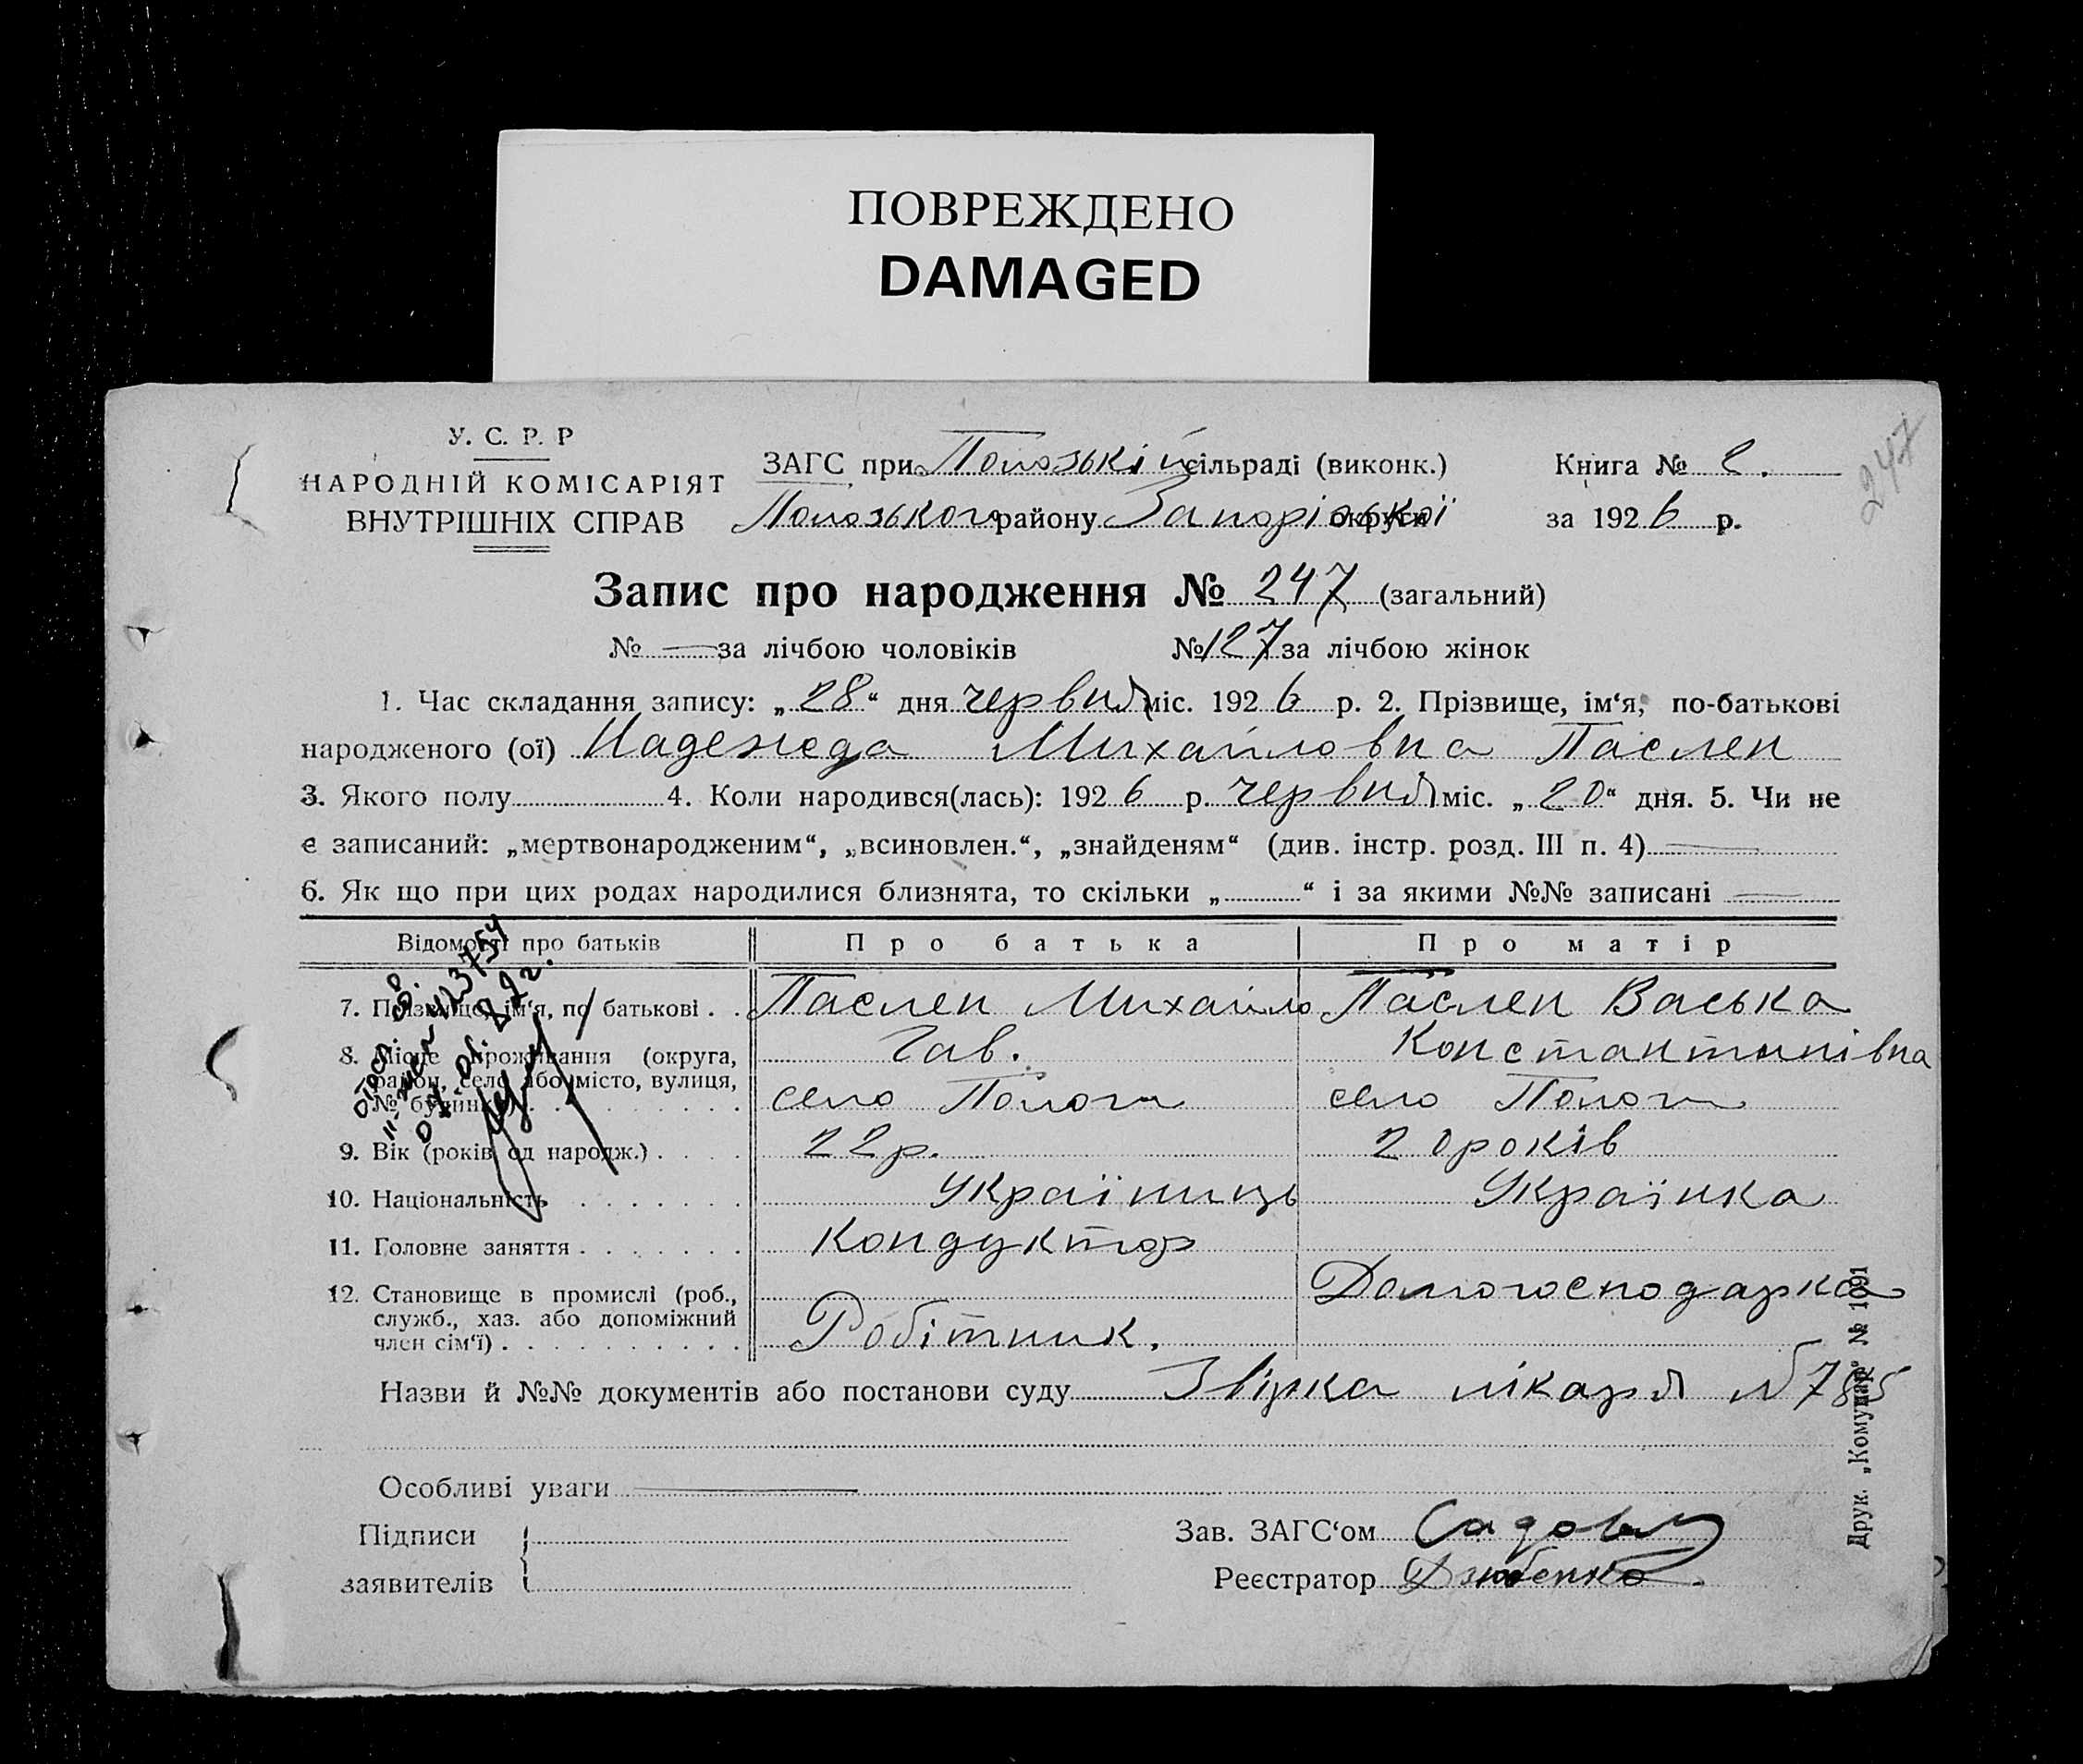 ПОВРЕЖДЕНО
DAMAGED
247
У. С. Р. Р
НАРОДНІЙ КОМІСАРІЯТ
ВНУТРІШНІХ СПРАВ
ЗАГС при Пологській сільраді (виконк.)
Пологського району Запорізької округи
Книга № 2.
за 1926 р.
Запис про народження № 247 (загальний)
№ — за лічбою чоловіків № 127 за лічбою жінок
1. Час складання запису: „28“ дня червня міс. 1926 р. 2. Прізвище, ім‘я, по-батькові
народженого (ої) Надежда Михайловна Паслен
3. Якого полу 4. Коли народився(лась): 1926 р. червня міс. „20“ дня. 5. Чи не
є записаний: „мертвонародженим“, „всиновлен.“, „знайденям“ (див. інстр. розд. III п. 4) —
6. Як що при цих родах народилися близнята, то скільки „ “ і за якими №№ записані —
Відомості про батьків Про батька Про матір
7. Прізвище, ім‘я, по батькові . . Паслен Михайло Паслен Васька
Гав. Константинівна
8. Місце проживання (округа,
район, село або місто, вулиця,
№ будинку) село Пологи село Пологи
9. Вік (років од народж.) 22р. 20 років
10. Національність Українець Українка
11. Головне заняття Кондуктор
12. Становище в промислі (роб.,
служб., хаз. або допоміжний
член сім‘ї) Робітник. Домогосподарка
Назви й №№ документів або постанови суду Звірка лікаря №785
Особливі уваги —
Підписи
заявителів
Зав. ЗАГС‘ом
Реєстратор Дзюбенко.
Друк. „Комунар“ № 1091